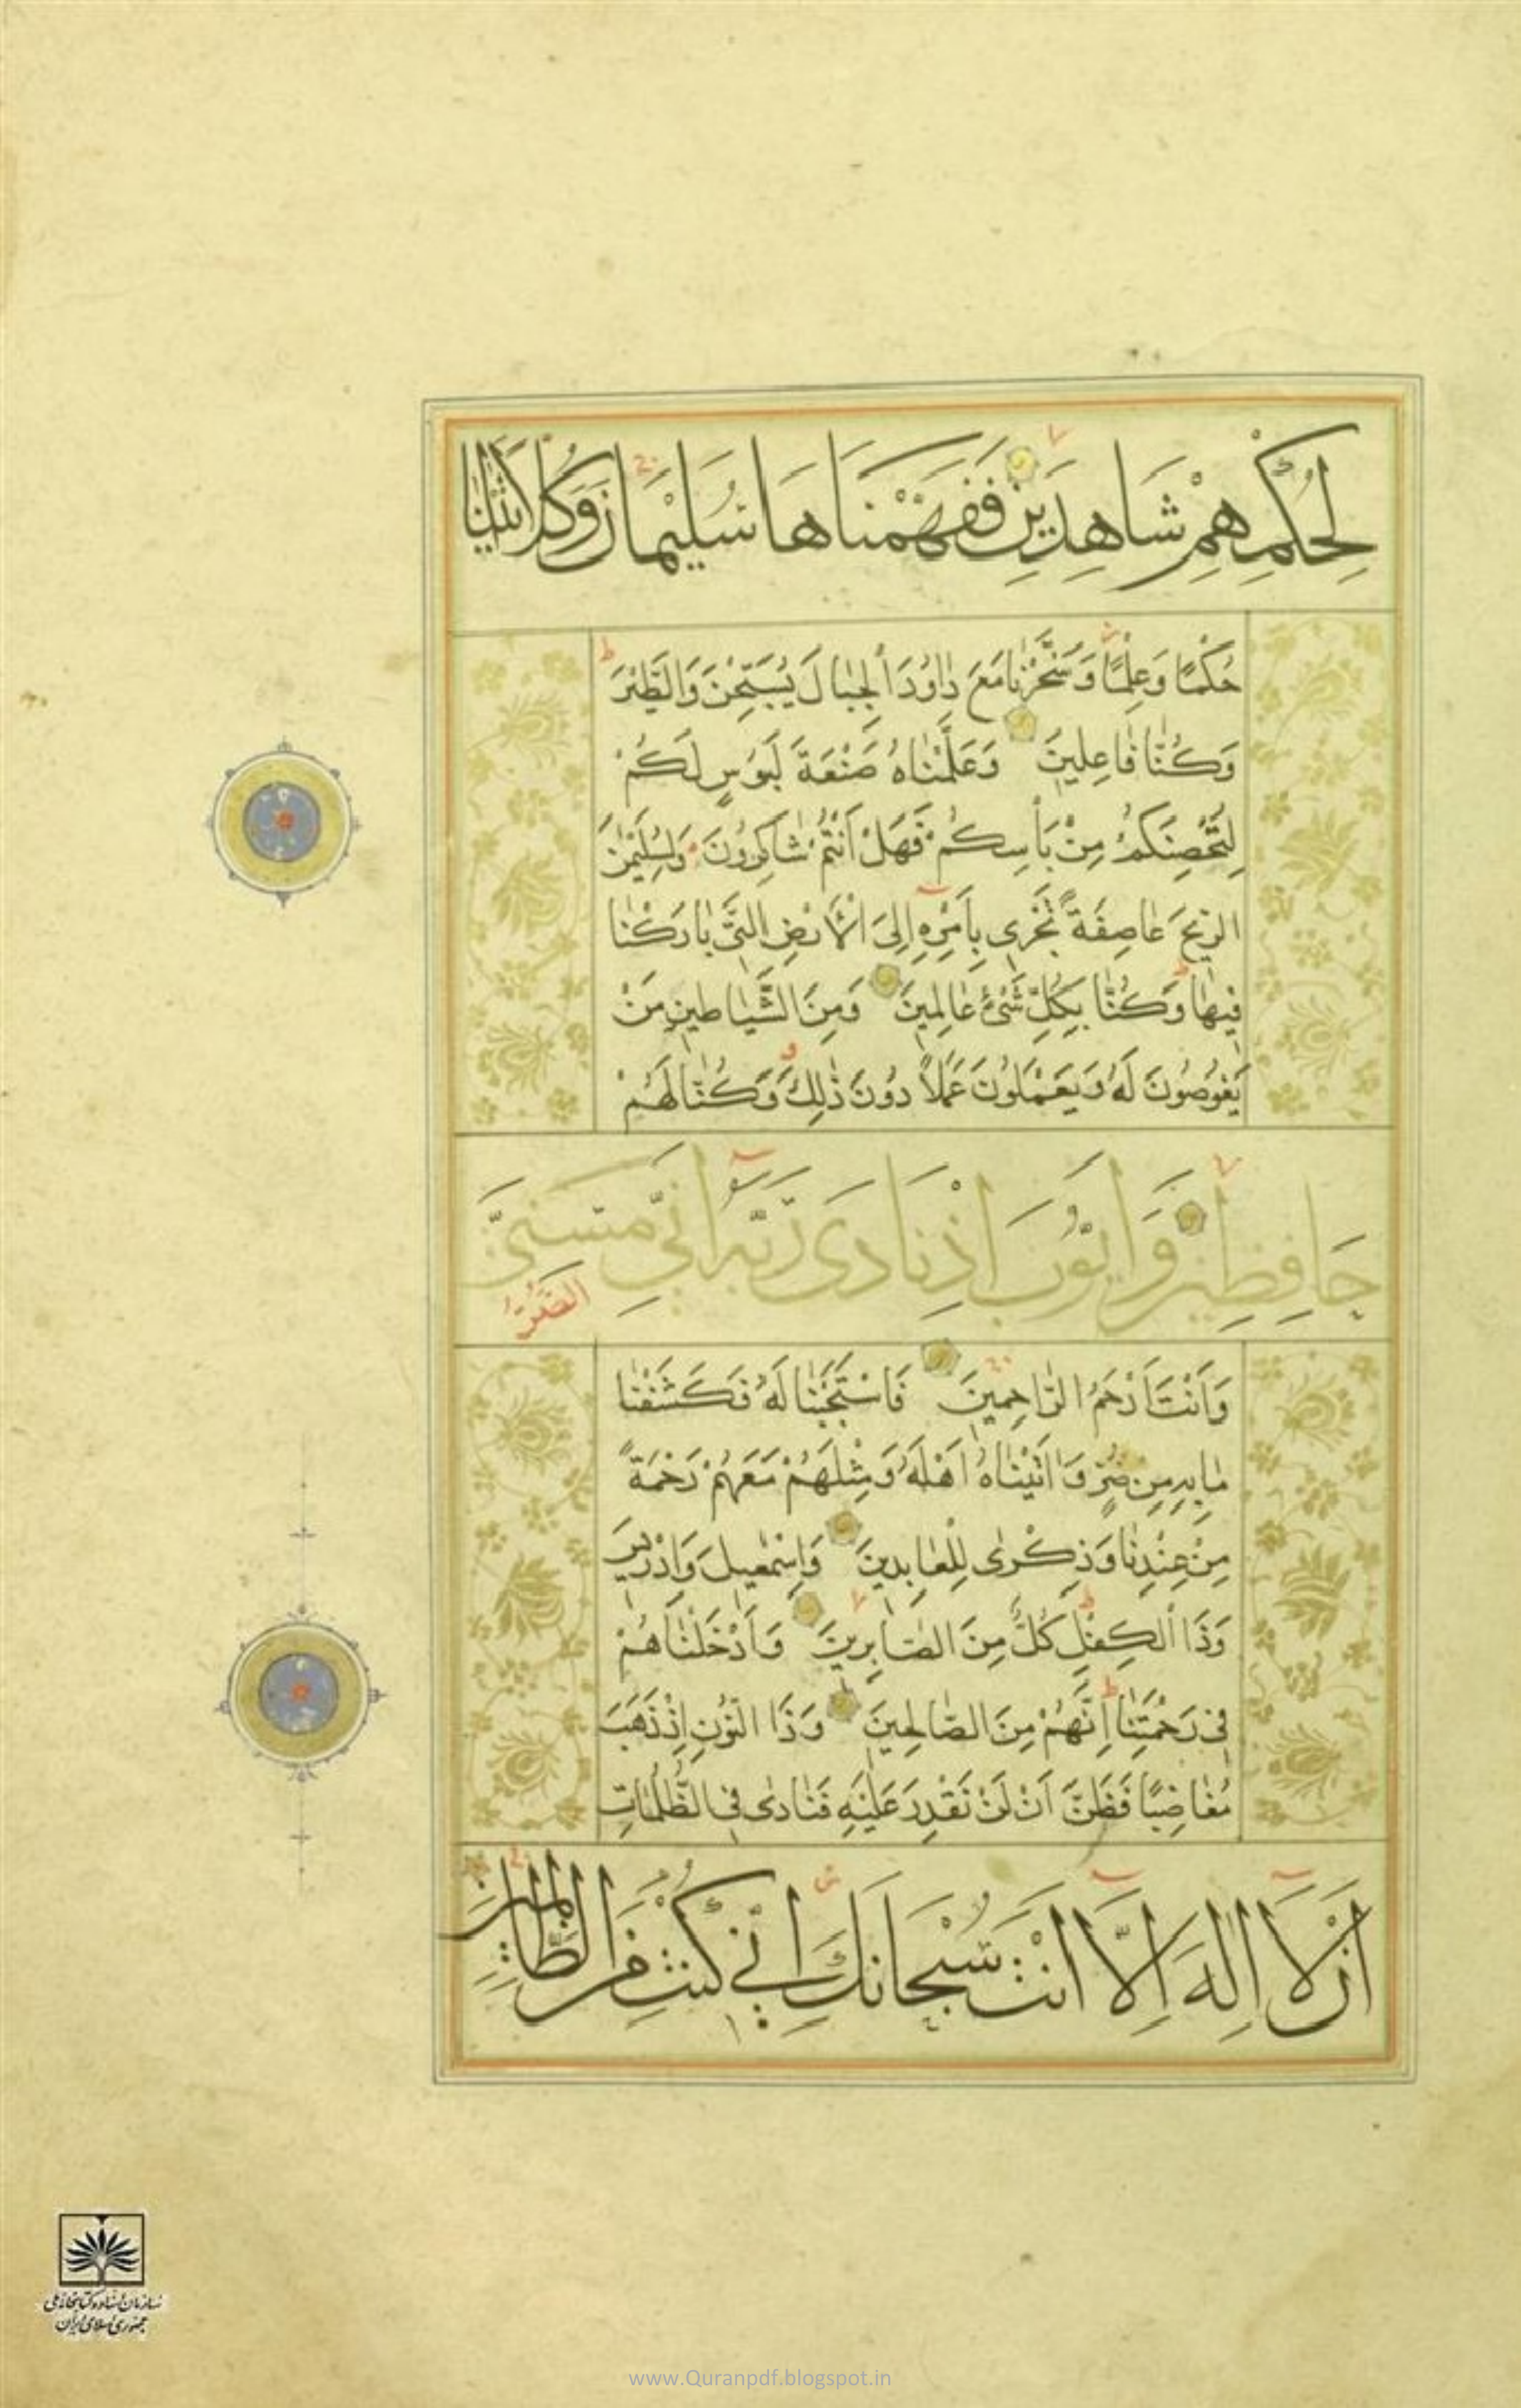 لِحُكْمِهِمْ شَاهِدِينَ فَفَهَّمْنَاهَا سُلَيْمَانَ وَكُلًّا اٰتَيْنَا
حُكْمًا وَعِلْمًا وَسَخَّرْنَا مَعَ دَاوُدَ الْجِبَالَ يُسَبِّحْنَ وَالطَّيْرَ
وَكُنَّا فَاعِلِينَ وَعَلَّمْنَاهُ صَنْعَةَ لَبُوسٍ لَكُمْ
لِتُحْصِنَكُمْ مِنْ بَأْسِكُمْ فَهَلْ أَنْتُمْ شَاكِرُونَ وَلِسُلَيْمٰنَ
الرِّيحَ عَاصِفَةً تَجْرِي بِأَمْرِهِ إِلَى الْأَرْضِ الَّتِي بَارَكْنَا
فِيهَا وَكُنَّا بِكُلِّ شَيْءٍ عَالِمِينَ وَمِنَ الشَّيَاطِينِ مَنْ
يَغُوصُونَ لَهُ وَيَعْمَلُونَ عَمَلًا دُونَ ذٰلِكَ وَكُنَّا لَهُمْ
حَافِظِينَ وَأَيُّوبَ إِذْ نَادَى رَبَّهُ أَنِّي مَسَّنِيَ
الضُّرُّ
وَأَنْتَ أَرْحَمُ الرَّاحِمِينَ فَاسْتَجَبْنَا لَهُ فَكَشَفْنَا
مَا بِهِ مِنْ ضُرٍّ وَاٰتَيْنَاهُ أَهْلَهُ وَمِثْلَهُمْ مَعَهُمْ رَحْمَةً
مِنْ عِنْدِنَا وَذِكْرٰى لِلْعَابِدِينَ وَإِسْمٰعِيلَ وَإِدْرِيسَ
وَذَا الْكِفْلِ كُلٌّ مِنَ الصَّابِرِينَ وَأَدْخَلْنَاهُمْ
فِي رَحْمَتِنَا إِنَّهُمْ مِنَ الصَّالِحِينَ وَذَا النُّونِ إِذْ ذَهَبَ
مُغَاضِبًا فَظَنَّ أَنْ لَنْ نَقْدِرَ عَلَيْهِ فَنَادٰى فِي الظُّلُمَاتِ
أَنْ لَا إِلٰهَ إِلَّا أَنْتَ سُبْحَانَكَ إِنِّي كُنْتُ مِنَ الظَّالِمِينَ
سازمان اسناد و کتابخانه ملی
جمهوری اسلامی ایران
www.Quranpdf.blogspot.in